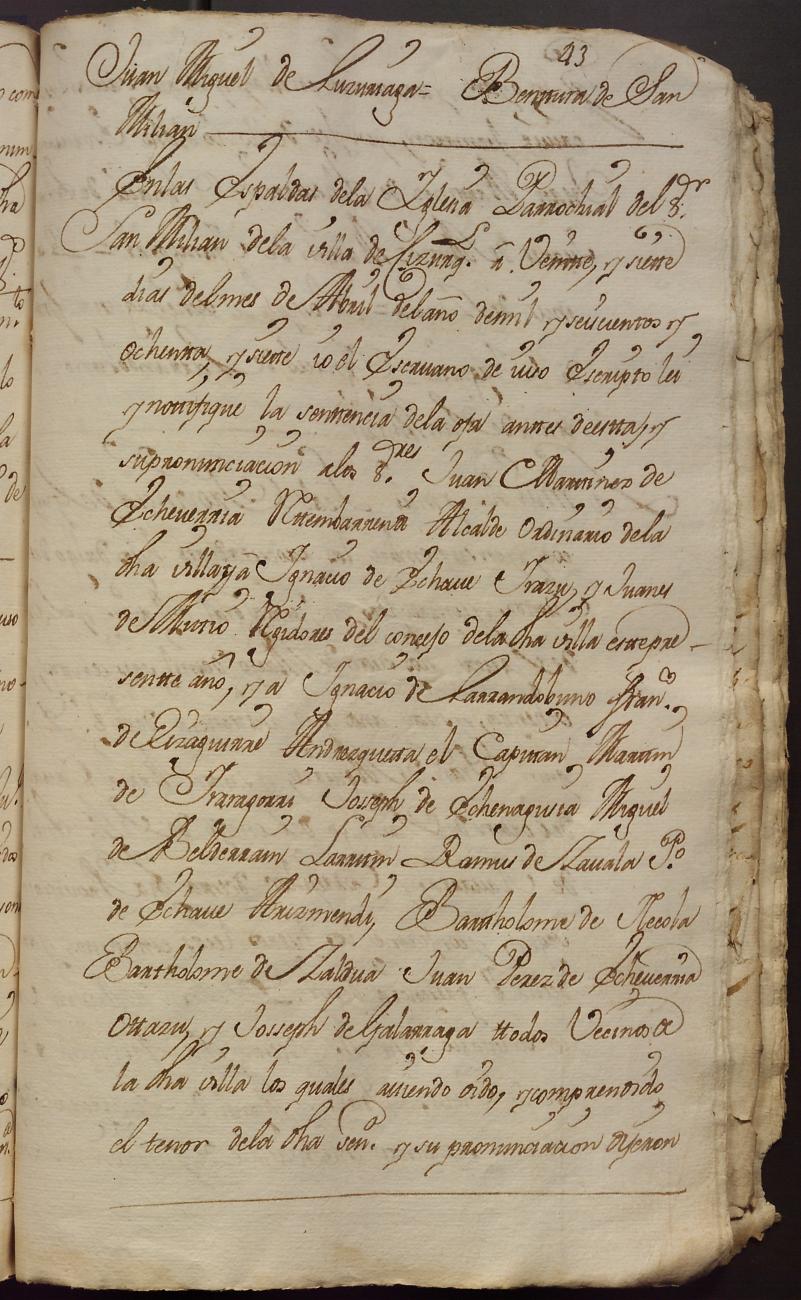 43
Juan Miguel de Luzuriaga = Bentura de San
Milian
En las Espaldas de la Iglesia Parrochial del S.or
San Milian de la villa de Cizurq.l a Veintte, y siette
dias del mes de Abril del año de mil y seiscientos y
ochentta, y siette io el Escrivano de iuso Escripto lei
y nottifique la senttencia de la oja anttes de estta, y
su pronunciacion a los S.res Juan Marttinez de
Echeverria Yttembarrena Alcalde Ordinario de la
dha villa, y a Ignacio de Echave Yrazu, y Juanes
de Murio Regidores del concejo de la dha villa estte pre-
sentte año, y a Ignacio de Larrandobuno Fran.co
de Eizaguirre Andrezquetta, el Capittan Marttin
de Yraragorri Joseph de Echenagusia Miguel
de Belderrain Larrum Ramus de Zavala P.o
de Echave Arizmendi, Barttholome de Recola
Barttholome de Zaldua Juan Perez de Echeverria
Ottazu, y Josseph de Galarraga ttodos Vecinos de
la dha villa los quales aviendo oido, y comprendido
el tenor de la dha sen.a y su pronunciacion dijeron